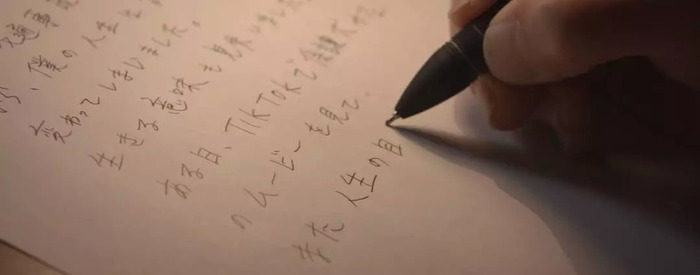 通事
僕の人生は
変わってしまいました。
生きる意味を見失いました
ある日、TikTokで
のムービーを見て、
また 人生の目